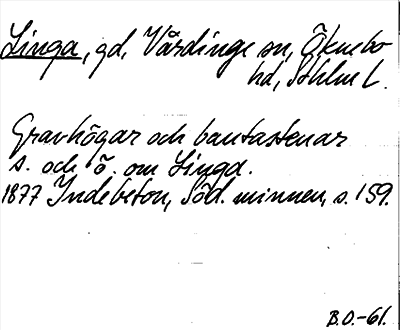 Linga, gd, Vårdinge sn, Öknebo
hd, Sthlm l.
Gravhögar och bautastenar
s. och ö. om Linga.
1877 Indebetou, Söd. minnen, s. 159.
B.O.-61.